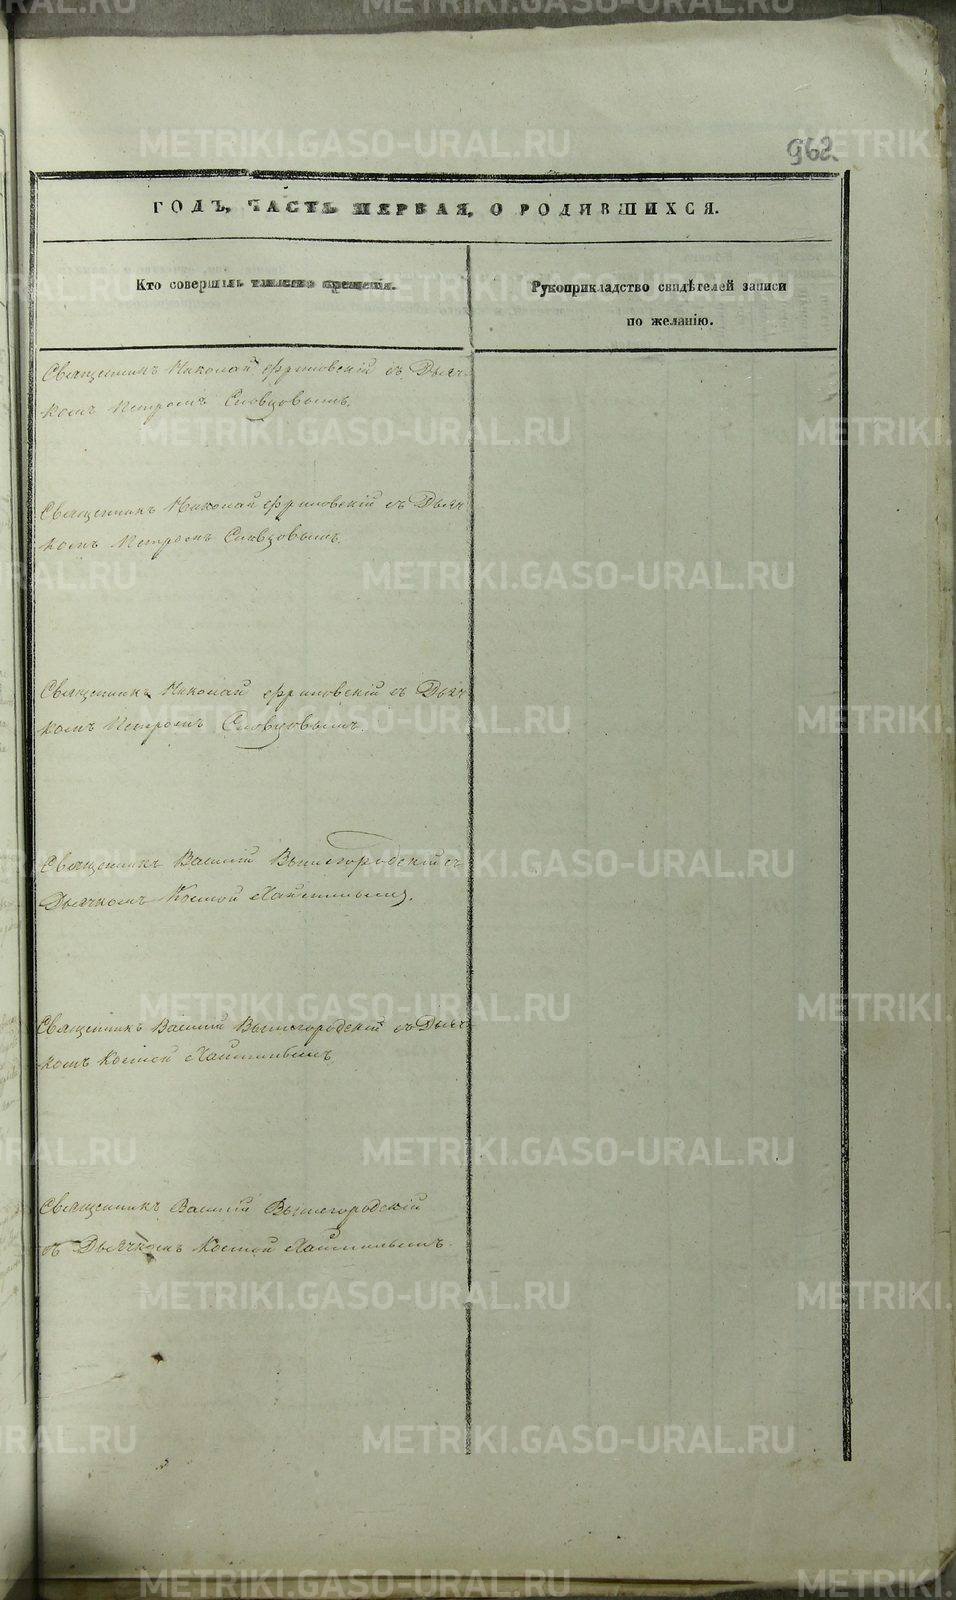 962
ГОДЪ, ЧАСТЬ ПЕРВАЯ, О РОДИВШИХСЯ.
Кто совершалъ таинство крещенія.
Рукоприкладство свидѣтелей записи
по желанію.
Священникъ Николай Фриновскій съ Дьяч-
комъ Петромъ Словцовымъ.
Священникъ Николай Фриновскій съ Дьяч-
комъ Петромъ Словцовымъ.
Священникъ Николай Фриновскій съ Дьяч-
комъ Петромъ Словцовымъ.
Священникъ Василій Вышегородскій съ
Дьячкомъ Космой
Священникъ Василій Вышегородскій съ Дьяч-
комъ Космой
Священникъ Василій Вышегородскій
съ Дьячкомъ Космой
METRIKI.GASO-URAL.RU